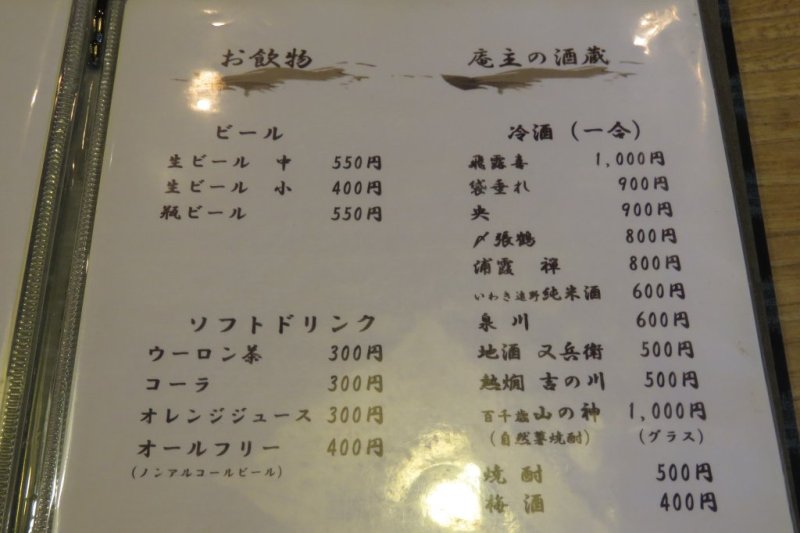 お飲物
ビール
生ビール 中 550円
生ビール 小 400円
瓶ビール 550円
ソフトドリンク
ウーロン茶 300円
コーラ 300円
オレンジジュース 300円
オールフリー 400円
(ノンアルコールビール)
庵主の酒蔵
冷酒(一合)
飛露喜 1,000円
袋垂れ 900円
央 900円
〆張鶴 800円
浦霞 禅 800円
いわき遠野純米酒 600円
泉川 600円
地酒 又兵衛 500円
熱燗 吉の川 500円
百千歳山の神 1,000円
(自然薯焼酎) (グラス)
焼酎 500円
梅酒 400円